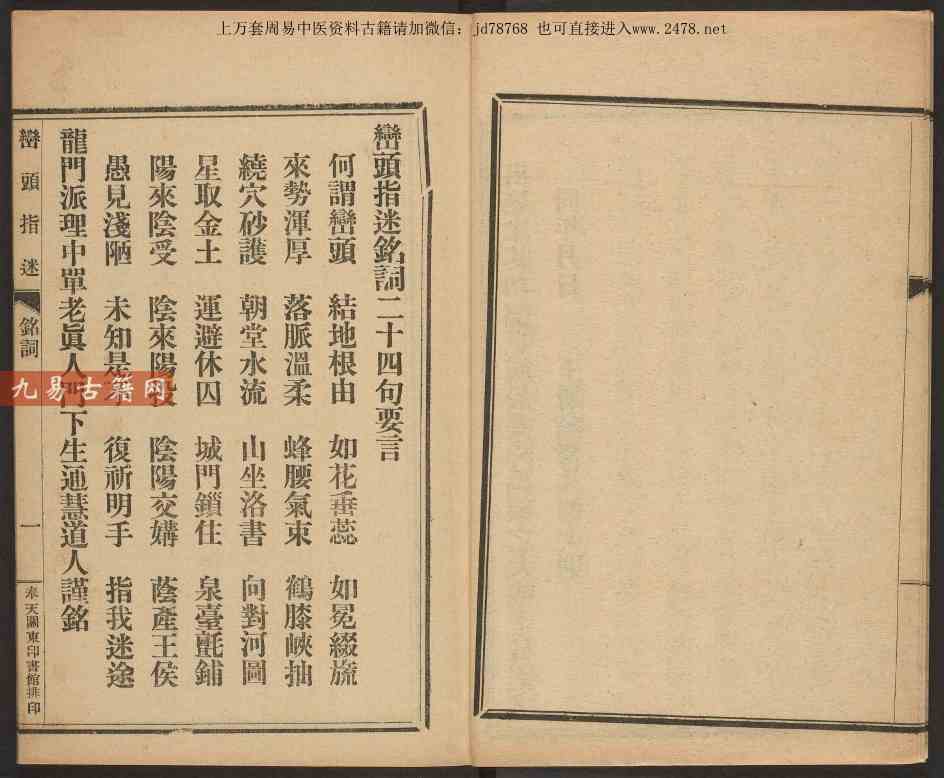 上万套周易中医资料古籍请加微信：jd78768 也可直接进入www.2478.net
巒頭指迷銘詞二十四句要言
何謂巒頭 結地根由 如花垂蕊 如冕綴旒
來勢渾厚 落脈溫柔 蜂腰氣束 鶴膝峽抽
繞穴砂護 朝堂水流 山坐洛書 向對河圖
星取金土 運避休囚 城門鎖住 泉臺氈鋪
陽來陰受 陰來陽 陰陽交媾 蔭產王侯
愚見淺陋 未知是 復祈明手 指我迷途
龍門派理中單老眞人門下生通慧道人謹銘
巒頭指迷 銘詞 一 奉天關東印書館排印
九易古籍网